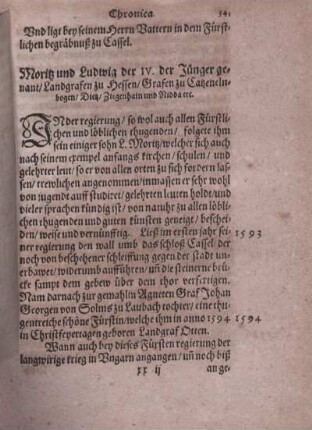 Chronica 34.
Vnd ligt bey seinem Herrn Vattern in dem Fürst-
lichen begräbnuß zu Cassel.
Moritz und Ludwig der IV. der Jünger ge-
nant / Landgrafen zu Hessen / Grafen zu Catzeneln-
bogen / Dietz / Ziegenhain und Nidda etc.
INder regierung / so wol auch allen Fürstli-
chen und löblichen thugenden / folgete ihm
sein einiger sohn L. Moritz / welcher sich auch
nach seinem exempel anfangs kirchen / schulen / und
gelehrter leut / so er von allen orten zu sich fordern las-
sen / trewlichen angenommen / inmassen er sehr wohl
von jugendt auff studiret / gelehrten leuten holdt / und
vieler sprachen kündig ist / von natuhr zu allen löbli-
chen thugenden und guten künsten geneigt / beschei-
den / weise und vernünfftig. Ließ im ersten jahr sei- 1593
ner regierung den wall umb das schloß Cassel / der
noch von beschehener schleiffung gegen der stadt un-
erbawet / widerumb aufführen / uñ die steinerne brü-
cke sampt dem gebew über dem thor verfertigen.
Nam darnach zur gemahlin Agneten Graf Johan
Georgen von Solms zu Laubach tochter / eine thu-
gentreiche schöne Fürstin / welche ihm in anno 1594 1594
in Christfeyertagen geboren Landgraf Otten.
Wann auch bey dieses Fürsten regierung der
langwirige krieg in Vngarn angangen / uñ noch biß
xx ij an ge-